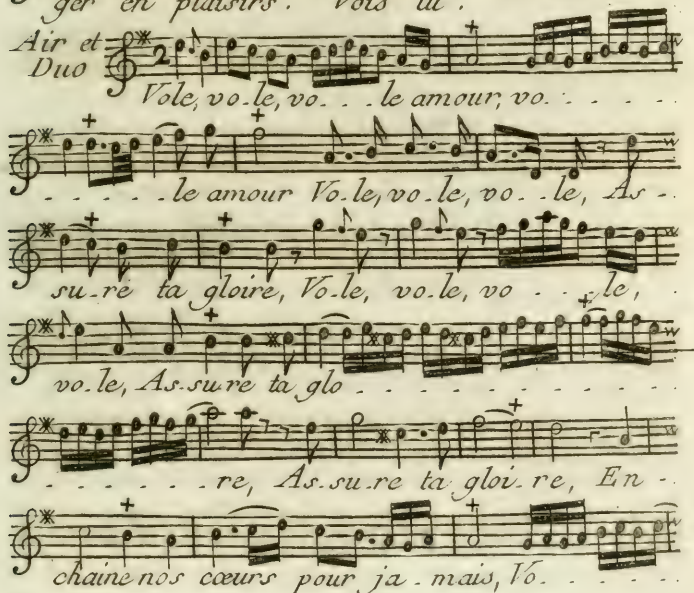 ger en plaisirs. Vois lu.
Air et
Duo
2
Vole, vo-le, vo - - - le amour, vo - - - -
- - - - - le amour Vo-le, vo-le, vo - - le, As -
su-re ta gloire, Vo-le, vo-le, vo - - - - le,
vo-le, As-su-re ta glo - - - - - - - - -
- - - - - - re, As-su-re ta gloi-re, En -
chaine nos cœurs pour ja - mais, Vo - - - - -